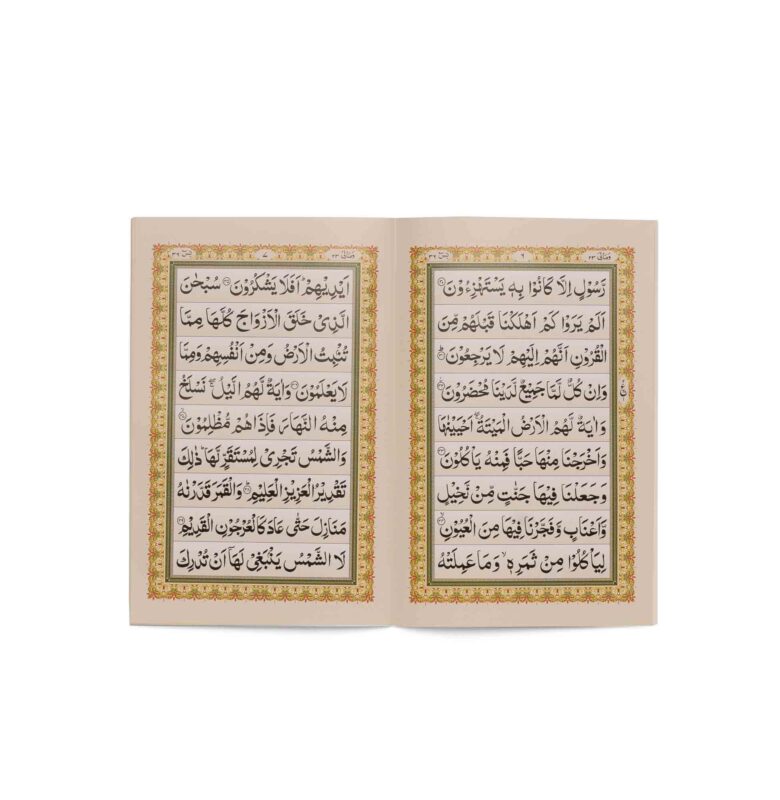 ومالی ٢٣ ٦ یٰسٓ ٣٦
رَّسُوۡلٍ اِلَّا كَانُوۡا بِهٖ يَسۡتَهۡزِءُوۡنَ ٣٠
اَلَمۡ يَرَوۡا كَمۡ اَهۡلَكۡنَا قَبۡلَهُمۡ مِّنَ
الۡقُرُوۡنِ اَنَّهُمۡ اِلَيۡهِمۡ لَا يَرۡجِعُوۡنَ ٣١
وَاِنۡ كُلٌّ لَّمَّا جَمِيۡعٌ لَّدَيۡنَا مُحۡضَرُوۡنَ ٣٢ ع
وَاٰيَةٌ لَّهُمُ الۡاَرۡضُ الۡمَيۡتَةُ ۖۚ اَحۡيَيۡنٰهَا
وَاَخۡرَجۡنَا مِنۡهَا حَبًّا فَمِنۡهُ يَاۡكُلُوۡنَ ٣٣
وَجَعَلۡنَا فِيۡهَا جَنّٰتٍ مِّنۡ نَّخِيۡلٍ
وَّاَعۡنَابٍ وَّفَجَّرۡنَا فِيۡهَا مِنَ الۡعُيُوۡنِ ۙ ٣٤
لِيَاۡكُلُوۡا مِنۡ ثَمَرِهٖ ۙ وَمَا عَمِلَتۡهُ
ومالی ٢٣ ٧ یٰسٓ ٣٦
اَيۡدِيۡهِمۡ ؕ اَفَلَا يَشۡكُرُوۡنَ ٣٥ سُبۡحٰنَ
الَّذِىۡ خَلَقَ الۡاَزۡوَاجَ كُلَّهَا مِمَّا
تُنۡۢبِتُ الۡاَرۡضُ وَمِنۡ اَنۡفُسِهِمۡ وَمِمَّا
لَا يَعۡلَمُوۡنَ ٣٦ وَاٰيَةٌ لَّهُمُ الَّيۡلُ ۖۚ نَسۡلَخُ
مِنۡهُ النَّهَارَ فَاِذَا هُمۡ مُّظۡلِمُوۡنَ ۙ ٣٧
وَالشَّمۡسُ تَجۡرِىۡ لِمُسۡتَقَرٍّ لَّهَا ؕ ذٰلِكَ
تَقۡدِيۡرُ الۡعَزِيۡزِ الۡعَلِيۡمِ ؕ ٣٨ وَالۡقَمَرَ قَدَّرۡنٰهُ
مَنَازِلَ حَتّٰى عَادَ كَالۡعُرۡجُوۡنِ الۡقَدِيۡمِ ٣٩
لَا الشَّمۡسُ يَنۡۢبَغِىۡ لَهَاۤ اَنۡ تُدۡرِكَ